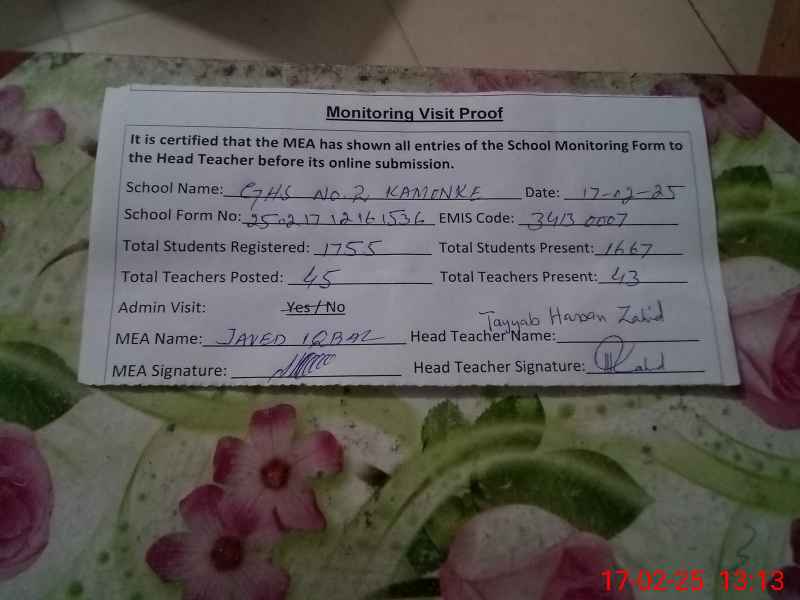 Monitoring Visit Proof
It is certified that the MEA has shown all entries of the School Monitoring Form to
the Head Teacher before its online submission.
School Name: GHS NO.2 KAMONKE Date: 17-02-25
School Form No: 250217 12161536 EMIS Code: 34130007
Total Students Registered: 1755 Total Students Present: 1667
Total Teachers Posted: 45 Total Teachers Present: 43
Admin Visit: Yes / No
MEA Name: JAVED IQBAL Head Teacher Name: Tayyab Hassan Zahid
MEA Signature: Head Teacher Signature: Zahid
17-02-25 13:13